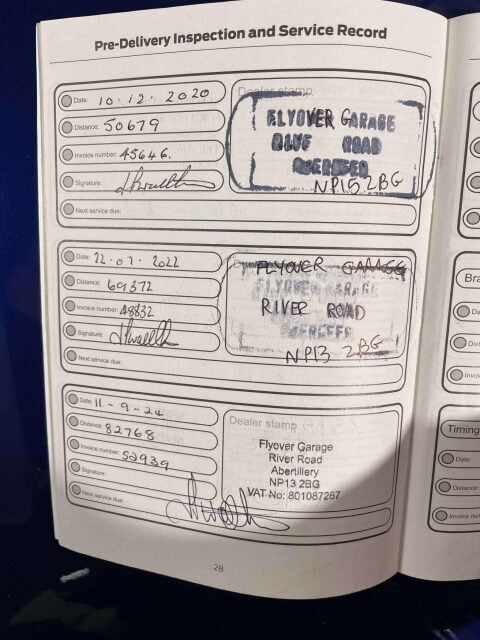 Pre-Delivery Inspection and Service Record
Date: 10.12.2020
Distance: 50679
Invoice number: 45646.
Signature:
Next service due:
Dealer stamp
FLYOVER GARAGE
ROAD
NP15 2BG
Date: 22.07.2022
Distance: 69372
Invoice number: 48832
Signature:
Next service due:
FLYOVER GARAGE
RIVER ROAD
NP13 2BG
Date: 11-9-24
Distance: 82768
Invoice number: 52939
Signature:
Next service due:
Dealer stamp
Flyover Garage
River Road
Abertillery
NP13 2BG
VAT No: 801087267
28
Bra
Da
Dist
Invoic
Timing
Date:
Distance:
Invoice num